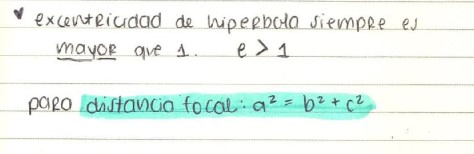 excentricidad de hiperbola siempre es
mayor que 1. e > 1
para distancia focal: a² = b² + c²